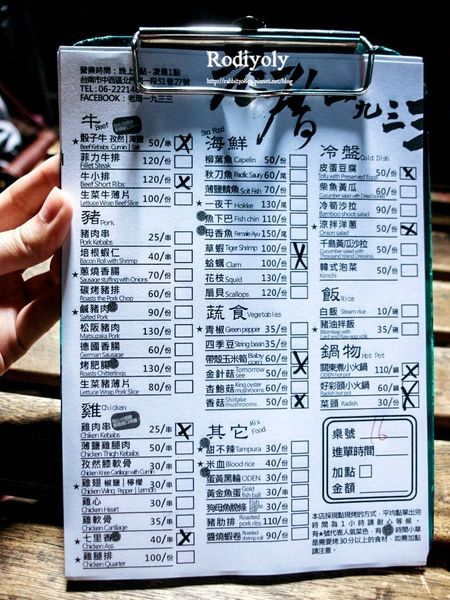 Rodiyoly
營業時間：晚上 點 - 凌晨1點
台南市中西區北門 一段51巷27號
TEL：06-22214
FACEBOOK：老厝一九三三
老厝一九三三
牛 Beef
★骰子牛 孜然 海鹽 50/串
Beef Kebabs Cumin Salt
菲力牛排 120/份
Fillet Steak
牛小排 120/份
Beef Short Ribs
生菜牛薄片 150/份
Lettuce Wrap Beef Slice
豬 Pork
豬肉串 25/串
Pork Kebabs
培根蝦仁 40/串
Bacon Roll with Shrimp
★蔥燒香腸 70/份
Sausage stuffing with Onions
碳烤豬排 60/份
Roasts the Pork Chop
★鹹豬肉 90/份
Salted Pork
松阪豬肉 130/份
Matsusaka Pork
德國香腸 60/份
German Sausage
★烤肥腸 100/份
Roasts Chitterlings
生菜豬薄片 110/份
Lettuce Wrap Pork Slice
雞 Chicken
雞肉串 25/串
Chiken Kebabs
薄鹽雞腿肉 50/串
Chicken Thigh Kebabs
孜然膝軟骨 30/串
Chicken Knee Cartilage with Cumin
★雞翅 椒鹽 檸檬 30/串
Chicken Wing Pepper Lemon
雞心 30/串
Chicken Heart
雞軟骨 35/串
Chicken Cartilage
★七里香 40/串
Chicken Ass
雞腿排 100/份
Chicken Quarter
海鮮 Sea Food
柳葉魚 Capelin 50/份
秋刀魚 Pacific Saury 60/尾
薄鹽鯖魚 Salt Fish 70/份
★一夜干 Hokke 130/份
★魚下巴 Fish chin 110/份
★母香魚 Female Ayu 150/尾
草蝦 Tiger Shrimp 100/份
蛤蠣 Clam 100/份
花枝 Squid 130/份
扇貝 Scallops 120/份
蔬食 Vegetables
★青椒 Green pepper 35/份
四季豆 String bean 35/份
帶殼玉米筍 Baby corn 60/份
金針菇 Tomorrow See 50/份
杏鮑菇 King oyster mushrooms 50/份
香菇 Shiitake mushrooms 50/份
其它 Mix Food
★甜不辣 Tampura 30/份
★米血 Blood rice 40/份
蛋黃黑輪 ODEN 40/份
黃金魚蛋 Gold fish ball 30/份
狗母魚脆條 50/份
豬肋排 Roasted pork ribs 110/份
醬燒蝦卷 Roasted shrimp roll 90/份
冷盤 Cold Dish
皮蛋豆腐 40/份
Tofu with Preserved Egg
柴魚黃瓜 50/份
Cucumber salad with Dried bonito
冷筍沙拉 90/份
Bamboo shoot salad
★涼拌洋蔥 50/份
Onion salad
千島黃瓜沙拉 50/份
Cucumber salad with Thousand Island Dressing
韓式泡菜 60/份
Kimchi
飯 Rice
白飯 Steam rice 10/碗
★豬油拌飯 35/碗
鍋物 Hot Pot
關東煮小火鍋 110/鍋
ODEN hot pot
好彩頭小火鍋 60/鍋
Radish hot pot
菜頭 Radish 30/份
桌號： 16
進單時間
加點
金額：
本店採現點現烤的方式，平均點單出完
時間為1小時請耐心等候，
有★號代表人氣菜色，有 時間小單
是需要烤30分以上的食材，如需加點
請注意。